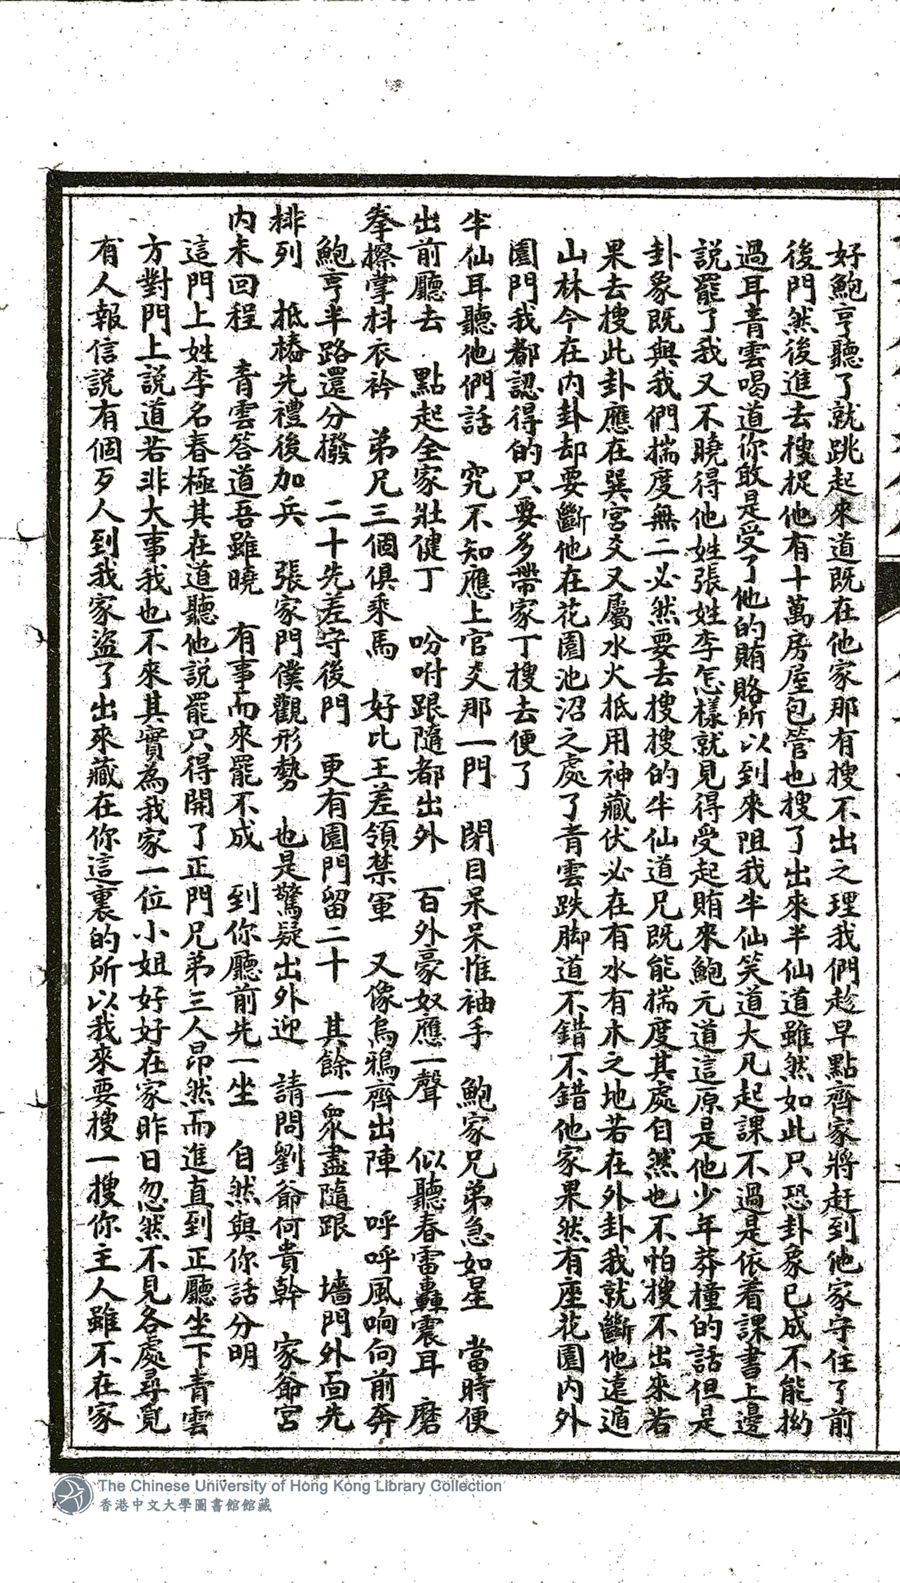 好鮑亨聽了就跳起來道既在他家那有搜不出之理我們趁早點齊家將赶到他家守住了前
後門然後進去搜捉他有十萬房屋包管也搜了出來半仙道雖然如此只恐卦象已成不能拗
過耳青雲喝道你敢是受了他的賄賂所以到來阻我半仙笑道大凡起課不過是依着課書上邊
說罷了我又不曉得他姓張姓李怎樣就見得受起賄來鮑元道這原是他少年莽撞的話但是
卦象既與我們揣度無二必然要去搜搜的半仙道兄既能揣度其處自然也不怕搜不出來若
果去搜此卦應在巽宮爻又屬水火抵用神藏伏必在有水有木之地若在外卦我就斷他遠遁
山林今在內卦却要斷他在花園池沼之處了青雲跌脚道不錯不錯他家果然有座花園內外
園門我都認得的只要多帶家丁搜去便了
半仙耳聽他們話 究不知應上官爻那一門 閉目呆呆惟袖手 鮑家兄弟急如星 當時便
出前廳去 點起全家壯健丁 吩咐跟隨都出外 百外豪奴應一聲 似聽春雷轟震耳 磨
拳擦掌抖衣衿 弟兄三個俱乘馬 好比王差領禁軍 又像烏鴉齊出陣 呼呼風响向前奔
鮑亨半路還分撥 二十先差守後門 更有園門留二十 其餘一衆盡隨跟 墻門外面先
排列 抵樁先禮後加兵 張家門僕觀形勢 也是驚疑出外迎 請問劉爺何貴幹 家爺宮
內未回程 青雲答道吾雖曉 有事而來罷不成 到你廳前先一坐 自然與你話分明
這門上姓李名春極其在道聽他說罷只得開了正門兄弟三人昂然而進直到正廳坐下青雲
方對門上說道若非大事我也不來其實為我家一位小姐好好在家昨日忽然不見各處尋覓
有人報信說有個歹人到我家盜了出來藏在你這裏的所以我來要搜一搜你主人雖不在家
The Chinese University of Hong Kong Library Collection
香港中文大學圖書館館藏